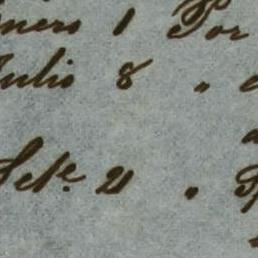 nero 1 Por
Julio 8 "
Set.e 21 "